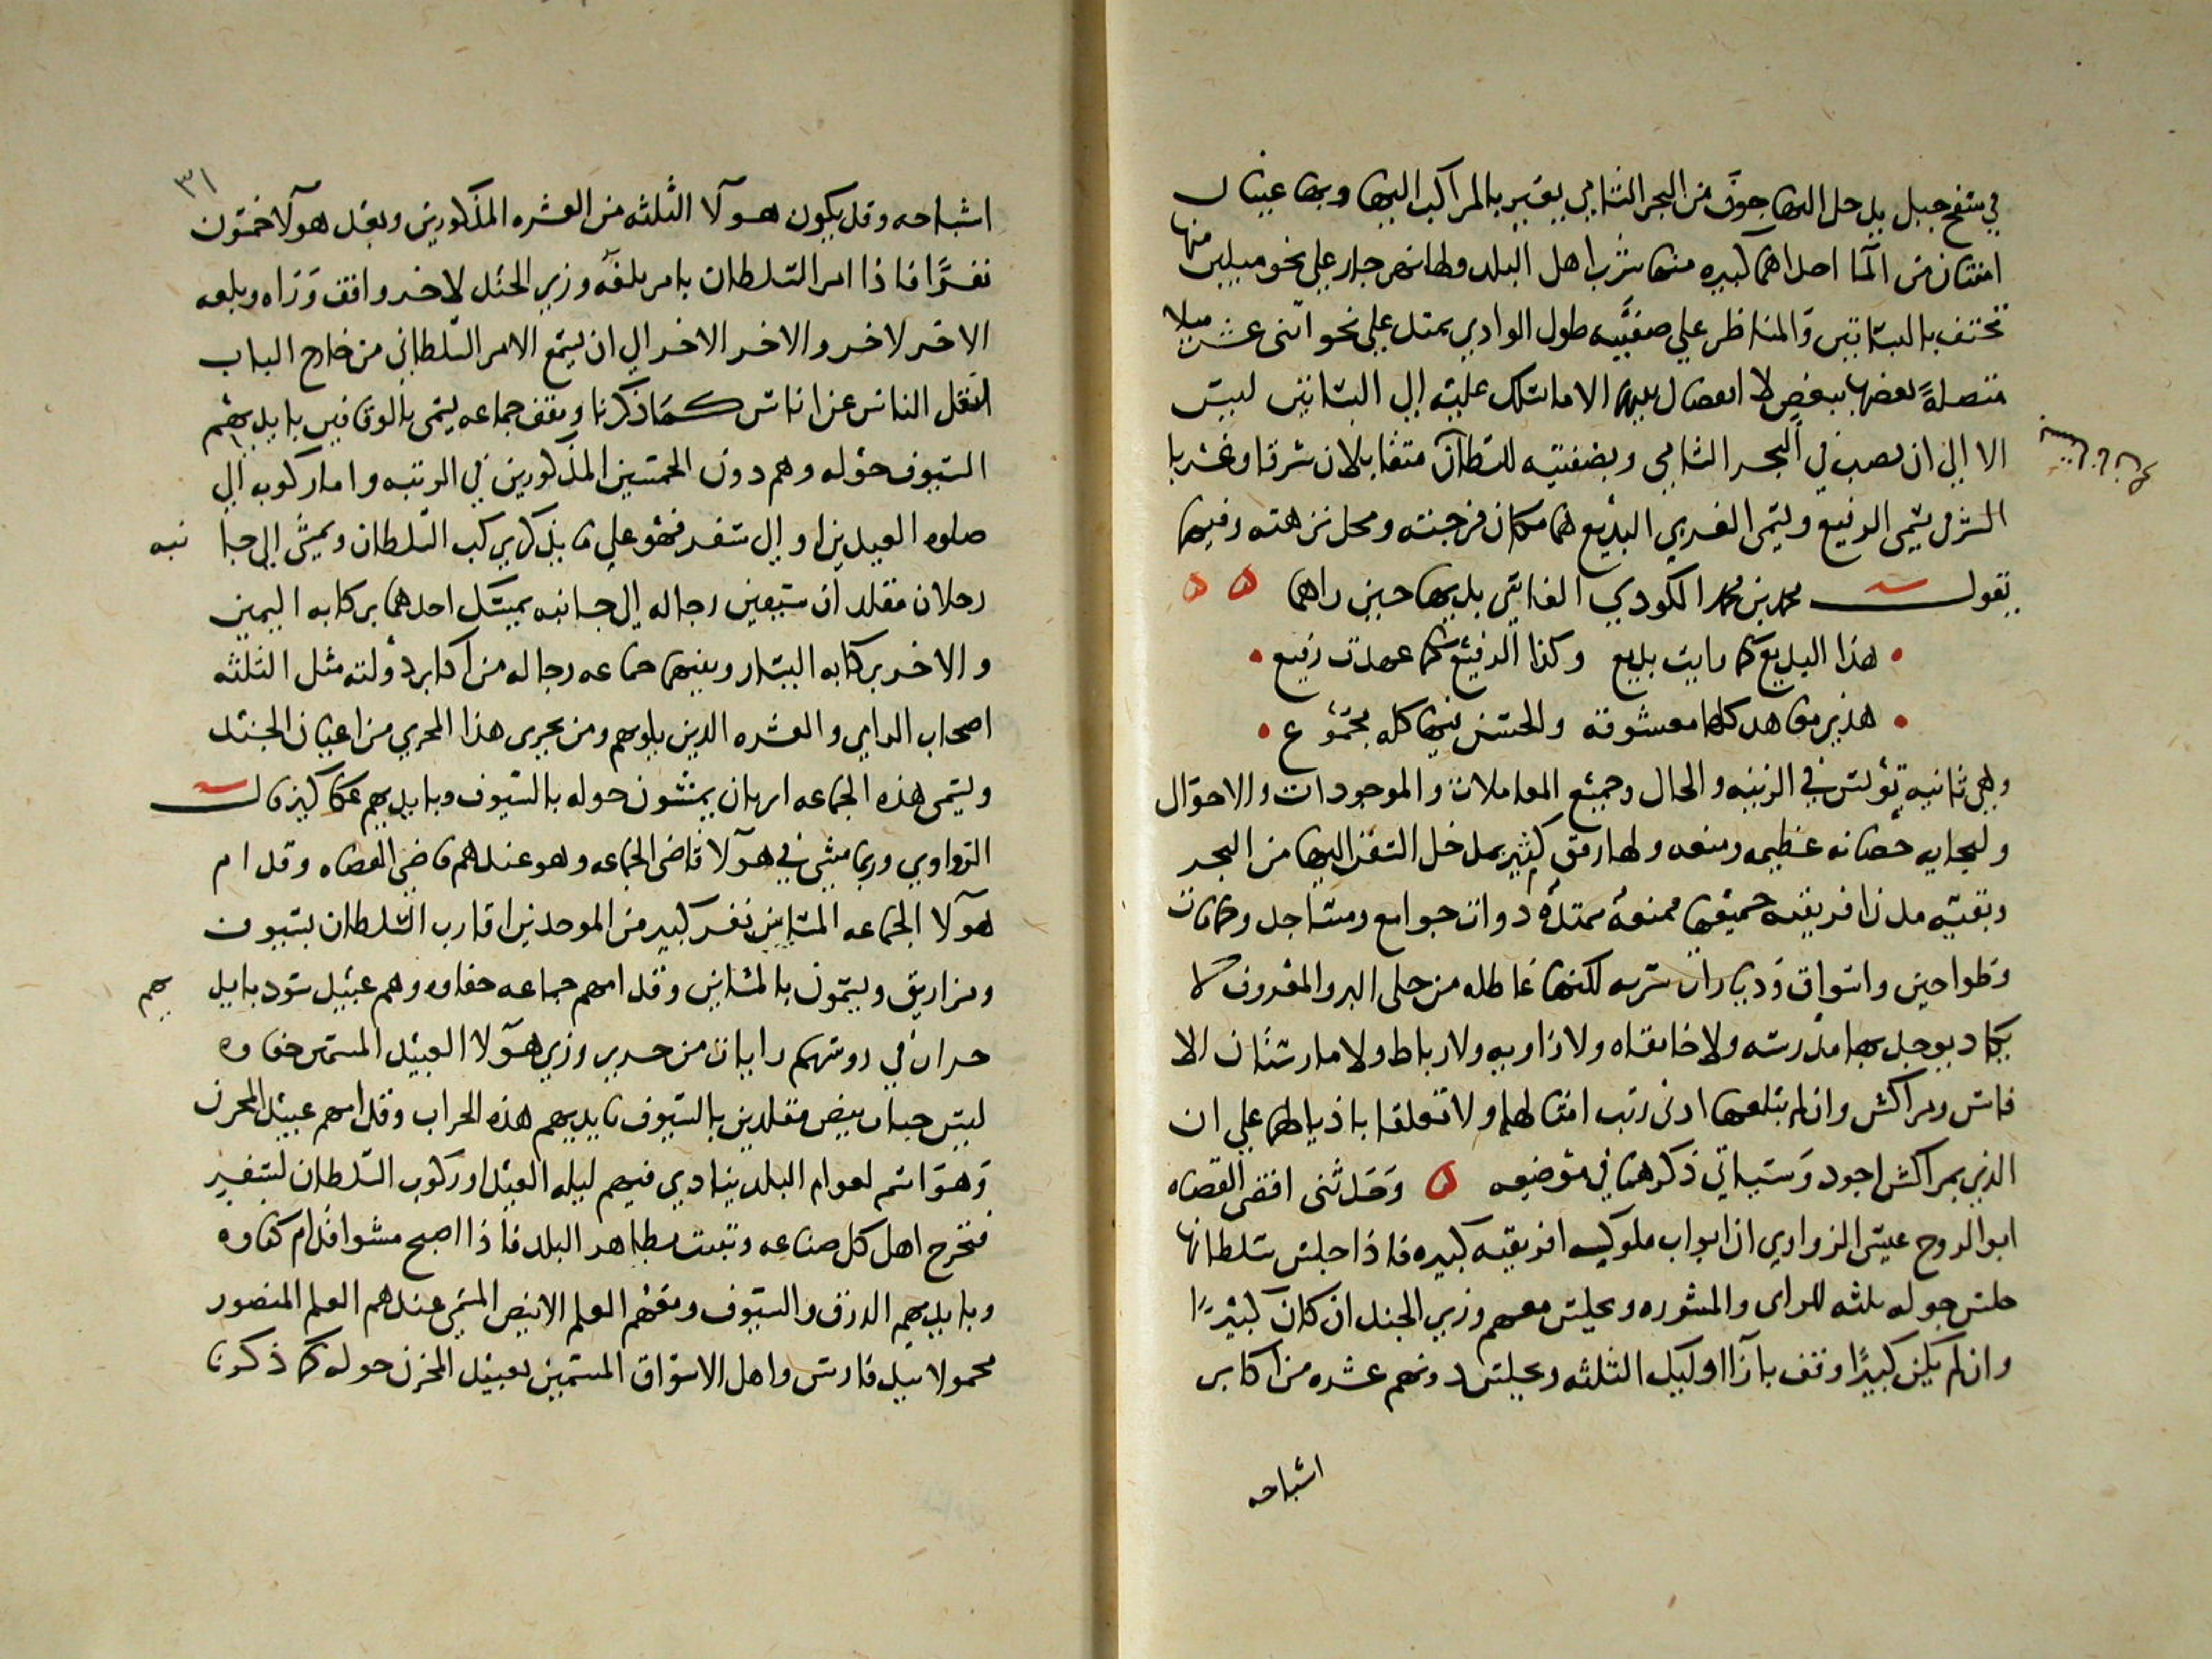 في سفح جبل يدخل اليها جوف من البحر الشامي يعبر بالمراكب اليها وبها عينان
اثنتان من المآ احداهما كبيره منها شرب اهل البلد ولها نهر جار على نحو ميلين منها
تحتف بالبساتين والمناظر على ضفتيه طول الوادي يمتد على نحو اثنى عشر ميلا
متصلة بعضها ببعض لا انفصال بينها الا ما تسلك عليه الى البساتين ليس
الا الى ان يصب في البحر الشامي وبضفتيه للسلطان متقابلان شرقا وغربا
الشرقي يسمى الرفيع ويسمى الغربي البديع هما مكان فرجته ومحل نزهته وفيها
يقول محمد بن محمد المكودي الفاسي بديها حين راهما ه ه
هذا البديع كما رايت بديع وكذا الرفيع كما عهدت رفيع
هذي معاهد كلها معشوقة والحسن فيها كله مجموع
وهي ثانيه تونس في الزينه والحال وجميع المعاملات والموجودات والاحوال
ولبجايه حصانه عظيمه ومنعه ولها رفق كثير بمدخل السفن اليها من البحر
وبقيه مدن افريقيه جميعها ممنعة ممتدة ذوات جوامع ومساجد وحمامات
وطواحين واسواق وديارات سريه لكنها عاطله من حلى البر والمعروف لا
يكاد يوجد بها مدرسه ولا خانقاه ولا زاويه ولا رباط ولا مارستان الا
فاس ومراكش وان لم تبلغها ادنى رتب امثالها ولا تعلقا باذيالها على ان
الذي بمراكش اجود وسياتي ذكرهما في موضعه ه وحدثنى اقضى القضاه
ابو الروح عيسى الزواوي ان ابواب ملوك افريقيه كبيره فاذا جلس سلطانها
جلس حوله ثلثه للراى والمشوره ويجلس معهم وزير الجند ان كان كبيرًا
وان لم يكن كبيرًا وقف بازآ اوليك الثلثه ويجلس دونهم عشره من اكابر
اشياخه
٣١
اشياخه وقد يكون هولآ الثلثه من العشره المذكورين وبعد هولآ خمسون
نفرًا فاذا امر السلطان بامر بلغه وزير الجند لاخر واقف وراه وبلغه
الاخر لاخر والاخر الاخر الى ان يسمع الامر السلطاني من خارج الباب
لنقل الناس عن اناس كما ذكرنا ويقف جماعه يسمى بالوقافين بايديهم
السيوف حوله وهم دون الخمسين المذكورين في الرتبه واما ركوبه الى
صلوه العيدين او الى سفر فهو على ما يذكر يركب السلطان ويمشى الى جانبه
رجلان مقلدان سيفين رجاله الى جانبه يمسك احدهما بركابه اليمين
والاخر بركابه اليسار ويليهما جماعه رجاله من اكابر دولته مثل الثلثه
اصحاب الراي والعشره الذين يلونهم ومن يجرى هذا المجرى من اعيان الجند
وتسمى هذه الجماعه ايربان يمشون حوله بالسيوف وبايديهم عكاكيز قال
الزواوي وربما مشى في هولآ قاضى الجماعه وهو عندهم قاضي القضاه وقدام
هولآ الجماعه المشايين نفر كبير من الموحدين اقارب السلطان بسيوف
ومزاريق ويسمون بالمشايين وقدامهم جماعه جفاوه وهم عبيد سود بايديهم
حراب في روسهم رايات من حرير وزي هولآ العبيد المسمين جفاوه
لبس جباب بيض مقلدين بالسيوف بايديهم هذه الحراب وقدامهم عبيد المخزن
وهو اسم لعوام البلد ينادي فيهم ليله العيد او ركوب السلطان لسفر
فتخرج اهل كل صناعه وتبيت بظاهر البلد فاذا اصبح مشوا قدام جفاوه
وبايديهم الدرق والسيوف ومعهم العلم الابيض المسمى عندهم العلم المنصور
محمولا بيد فارس واهل الاسواق المسمين بعبيد المخزن حوله كما ذكرنا